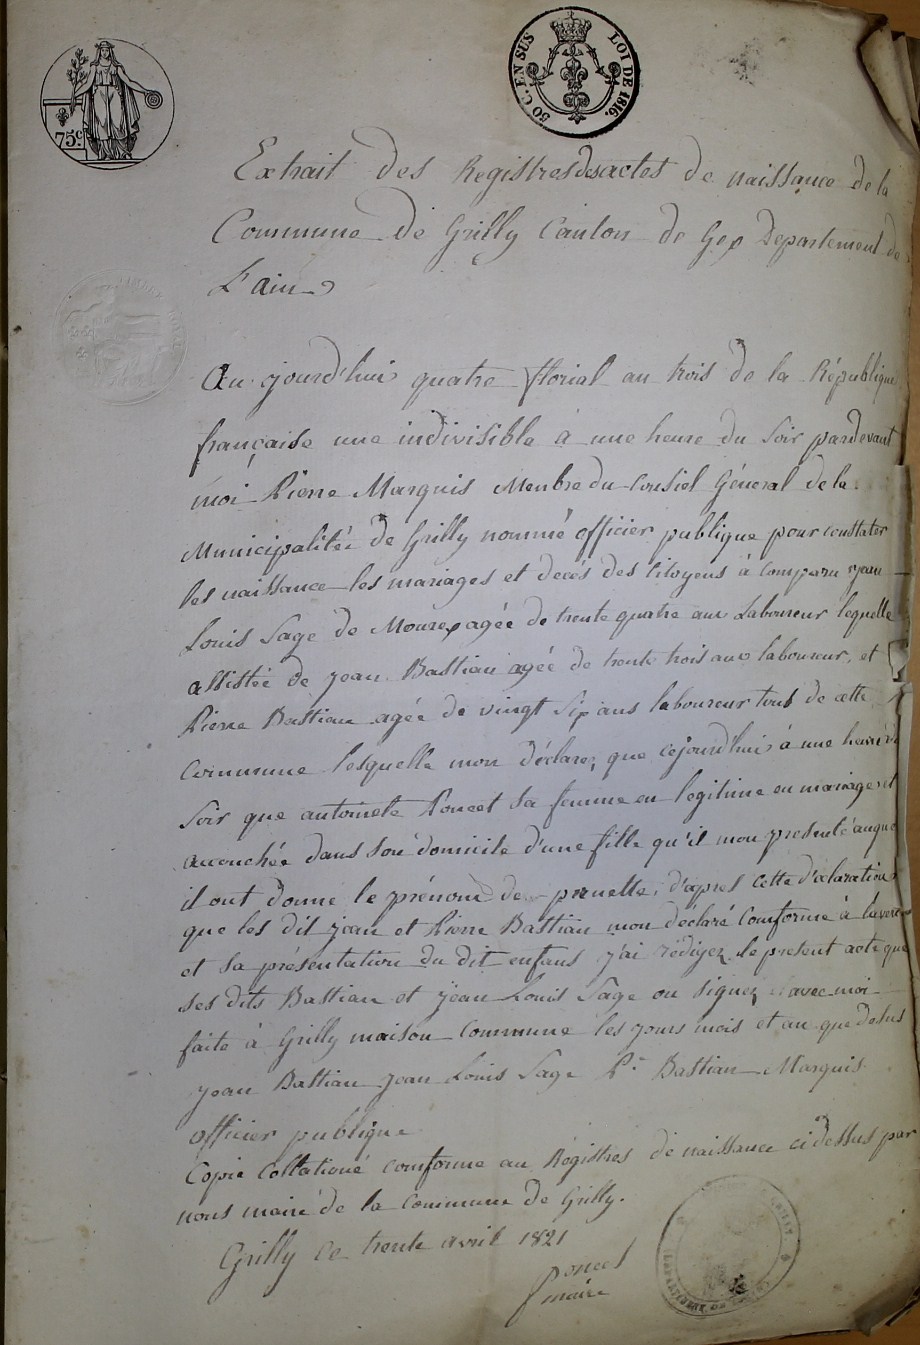 75 c
50 C. EN SUS LOI DE 1816.
Extrait des Registres des actes de naissance de la
Commune de Grilly Canton de Gex Departement de
L'ain
Au jourd'hui quatre florial an trois de la République
française une indivisible à une heure du Soir pardevant
moi Pierre Marquis Menbre du Consiel Géneral de la
Municipalitéé de Grilly nommé officier publique pour constater
les naissance les mariages et decés des Citoyens à comparu jean
Louis Sage de Mourex agée de trente quatre ans Laboureur lequelle
assistée de jean Bastian agée de trente trois ans laboureur, et
Pierre Bastian agée de vingt Six ans laboureur tous de cette
Commune lesquelle mon déclarer, que cejourd'hui à une heure
Soir que antoinete Poncet sa femme en legitime en mariage et
accouchée dans son domicile d'une fille qu'il mon presenté auque
il ont donne le prénom de pernette, d'apres cette déclaration
que les dit jean et Pierre Bastian mon declaré Comforme à la
et sa présentation du dit enfans j'ai rédigez le present acte que
ses dits Bastian et jean Louis Sage on signez avec moi
faite à Grilly maison Commune les jours mois et an que desus
jean Bastian jean Louis Sage Pre Bastian Marquis
officier publique
Copie Collationé comforme au Régistres de naissance ci dessus par
nous mairé de la Commune de Grilly.
Grilly ce trente avril 1821
Poncet
maire